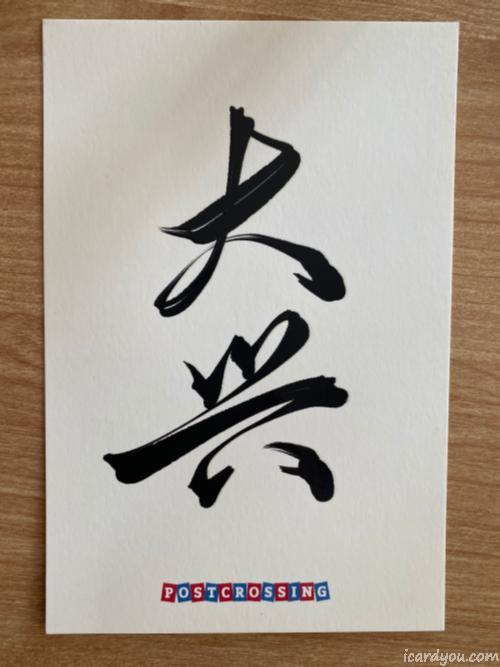 大
兴
POSTCROSSING
icardyou.com